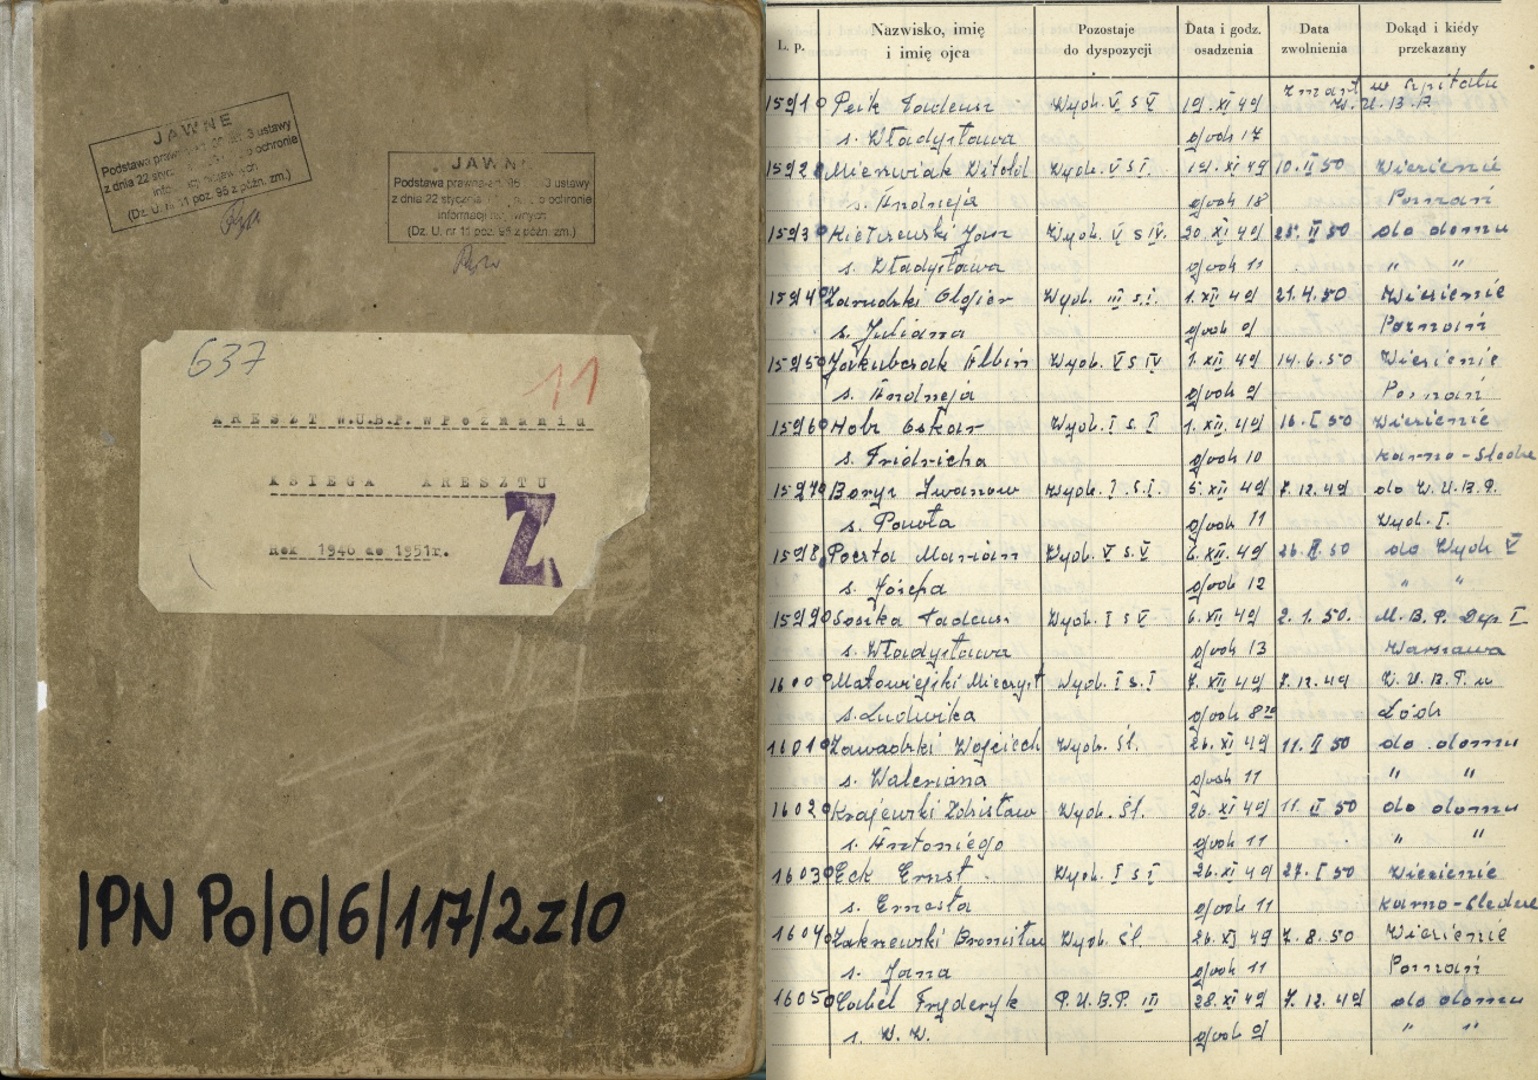 JAWNE
z dnia 22 stycznia
(Dz. U. nr 11 poz. 95 z późn. zm.)
JAWN
Podstawa prawna 3 ustawy
z dnia 22 stycznia o ochronie
informacji niejawnych
(Dz. U. nr 11 poz. 95 z późn. zm.)
637
11
ARESZT W.U.B.P. w Poznaniu
KSIĘGA ARESZTU
Rok 1946 do 1951r.
Z
IPN Po/0/6/117/2z/0
L. p. Nazwisko, imię i imię ojca Pozostaje do dyspozycji Data i godz. osadzenia Data zwolnienia Dokąd i kiedy przekazany
1591 Tadeusz Wydz. V s V 19. XI 49 zmarł w szpitalu
W.U.B.P.
s. Władysława godz 17
1592 Witold Wydz. V s I. 19. XI 49 10. II 50 Więzienie
s. Andrzeja godz 18 Poznań
1593 Jan Wydz. V s IV. 20. XI 49 25. II 50 do domu
s. Władysława godz 11 " "
1594 Olgier Wydz. III s. I. 1. XII 49 21.4.50 Więzienie
s. Juliana godz 9 Poznań
1595 Jakubczak Albin Wydz. V s IV 1. XII 49 14.6.50 Więzienie
s. Andrzeja godz 9 Poznań
1596 Oskar Wydz. I s. I 1. XII. 49 16. I 50 Więzienie
s. Fridricha godz 10 karno-
1597 Borys Iwanow Wydz. I. s. I. 5. XII 49 7.12.49 do W.U.B.P.
s. Pawła godz 11 Wydz. I.
1598 Poczta Marian Wydz. V s. V 6. XII. 49 50 do Wydz V
s. Józefa godz 12 " "
1599 Soszka Tadeusz Wydz. I s V 6. XII 49 2.1.50. M.B.P. Dep I
s. Władysława godz 13 Warszawa
1600 Małowiejski Mieczysł Wydz. I s. I 7. XII 49 7.12.49 W.U.B.P. w
s. Ludwika godz 8 Łódź
1601 Zawadzki Wojciech Wydz. Śl. 26. XI 49 11. II 50 do domu
s. Waleriana godz 11 " "
1602 Krajewski Zdzisław Wydz. Śl. 26. XI 49 11. II 50 do domu
s. Antoniego godz 11 " "
1603 Eck Ernst Wydz. I s I 26. XI 49 27. I 50 Więzienie
s. Ernesta godz 11 karno-
1604 Zakrzewski Bronisław Wydz. Śl. 26. XI 49 7.8.50 Więzienie
s. Jana godz 11 Poznań
1605 Fryderyk P.U.B.P. III 28. XI 49 7.12.49 do domu
s. W. W. godz 9 " "